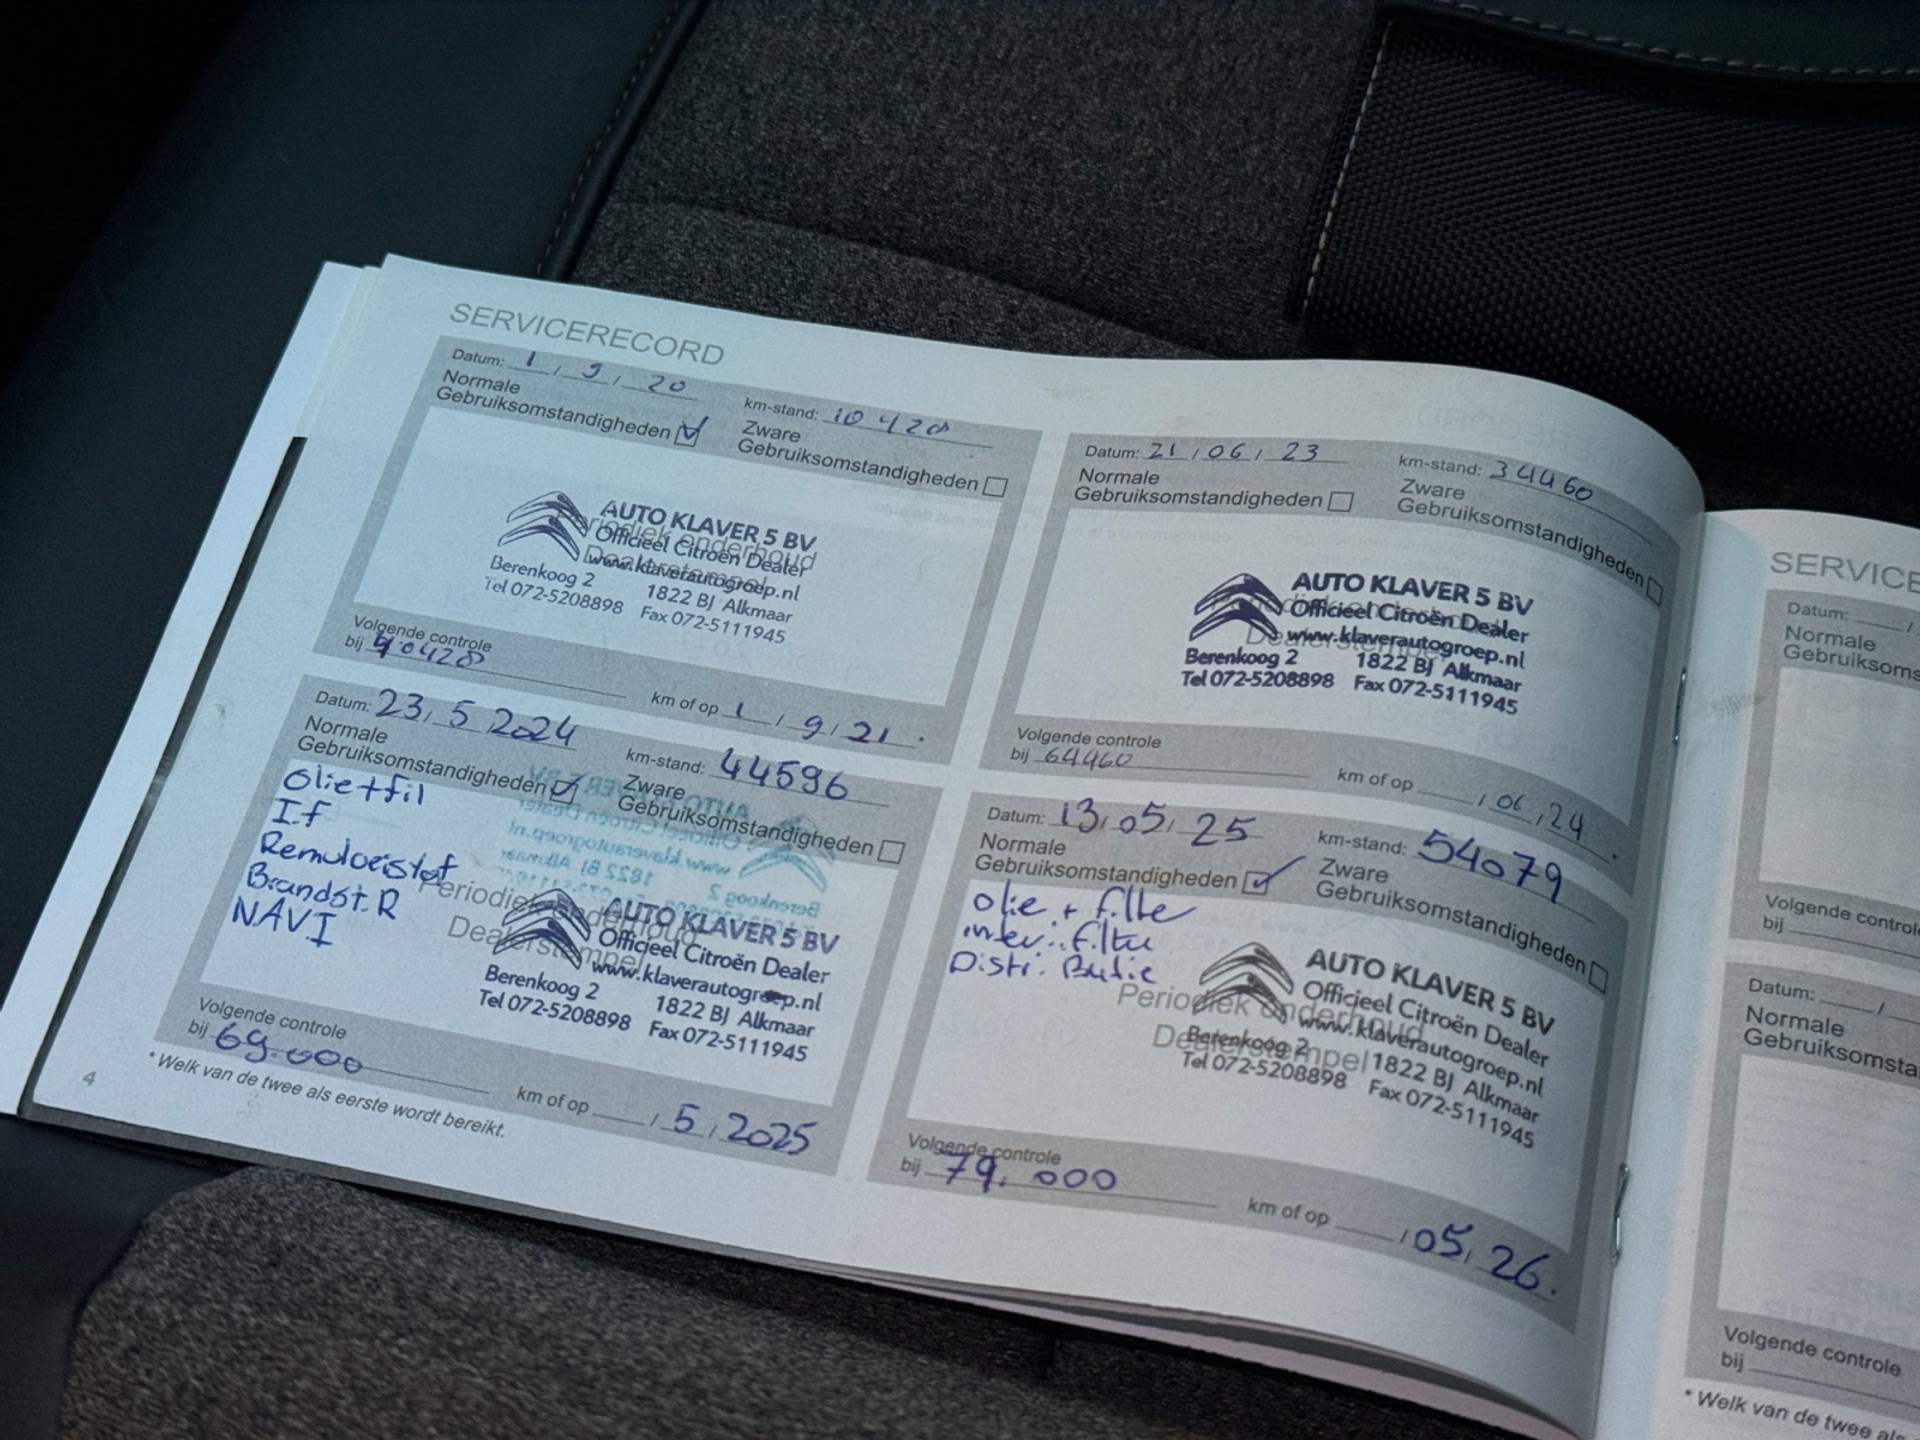 SERVICERECORD
Datum: 1 / 9 / 20 km-stand: 10 420
Normale Gebruiksomstandigheden Zware Gebruiksomstandigheden
Periodiek onderhoud
Dealerstempel
AUTO KLAVER 5 BV
Officieel Citroën Dealer
www.klaverautogroep.nl
Berenkoog 2 1822 BJ Alkmaar
Tel 072-5208898 Fax 072-5111945
Volgende controle
bij 40420 km of op 1 / 9 / 21 .
Datum: 21 / 06 / 23 km-stand: 34460
Normale Gebruiksomstandigheden Zware Gebruiksomstandigheden
Periodiek onderhoud
Dealerstempel
AUTO KLAVER 5 BV
Officieel Citroën Dealer
www.klaverautogroep.nl
Berenkoog 2 1822 BJ Alkmaar
Tel 072-5208898 Fax 072-5111945
Volgende controle
bij 64460 km of op / 06 / 24 .
Datum: 23 / 5 / 2024 km-stand: 44596
Normale Gebruiksomstandigheden Zware Gebruiksomstandigheden
Olie+fil
I.f
Remvloeistof
Brandst. R
NAVI
Periodiek onderhoud
Dealerstempel
AUTO KLAVER 5 BV
Officieel Citroën Dealer
www.klaverautogroep.nl
Berenkoog 2 1822 BJ Alkmaar
Tel 072-5208898 Fax 072-5111945
Volgende controle
bij 69.000 km of op / 5 / 2025
Datum: 13 / 05 / 25 km-stand: 54079
Normale Gebruiksomstandigheden Zware Gebruiksomstandigheden
olie + filte
inter. filte
Distri.
Periodiek onderhoud
Dealerstempel
AUTO KLAVER 5 BV
Officieel Citroën Dealer
www.klaverautogroep.nl
Berenkoog 2 1822 BJ Alkmaar
Tel 072-5208898 Fax 072-5111945
Volgende controle
bij 79.000 km of op / 05 / 26 .
4
* Welk van de twee als eerste wordt bereikt.
SERVICE
Datum: /
Normale
Gebruiksoms
Volgende controle
bij
Datum: /
Normale
Gebruiksomsta
Volgende controle
bij
* Welk van de twee als